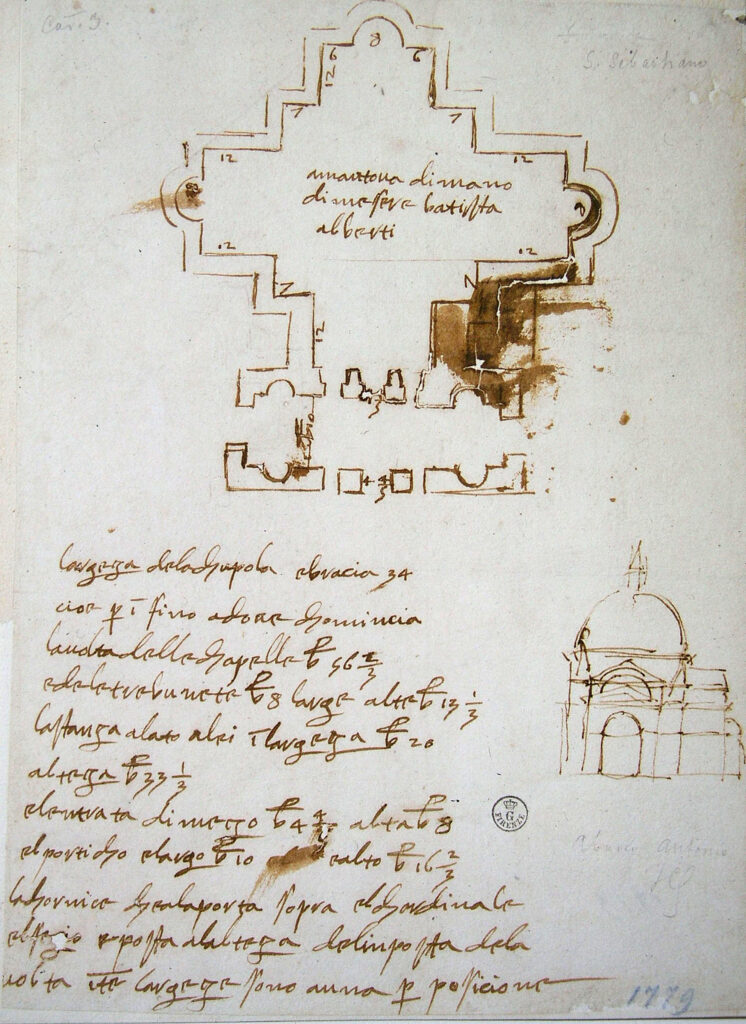 Car. 3.
S. Sebastiano
8
6 6
12
7 7
12 12
amantova dimano
dimesere batissta
alberti
12 12
7
12
largeza delachupola ebracia 34
cioe p i sino adove chomincia
lavolta dellechapelle b 56 2/3
edeletrebunete b 8 large alte b 13 1/3
lasstanza alato alei i largeza b 20
alteza b 33 1/3
elentrata dimezo b 4 alta b 8
elporticho elargo b 10 ealto b 16 2/3
lachornice chealaporta sopra elchardinale
posta alalteza delinposta dela
volta largeze sono auna p posicione
G
FIRENZE
Antonio
1779